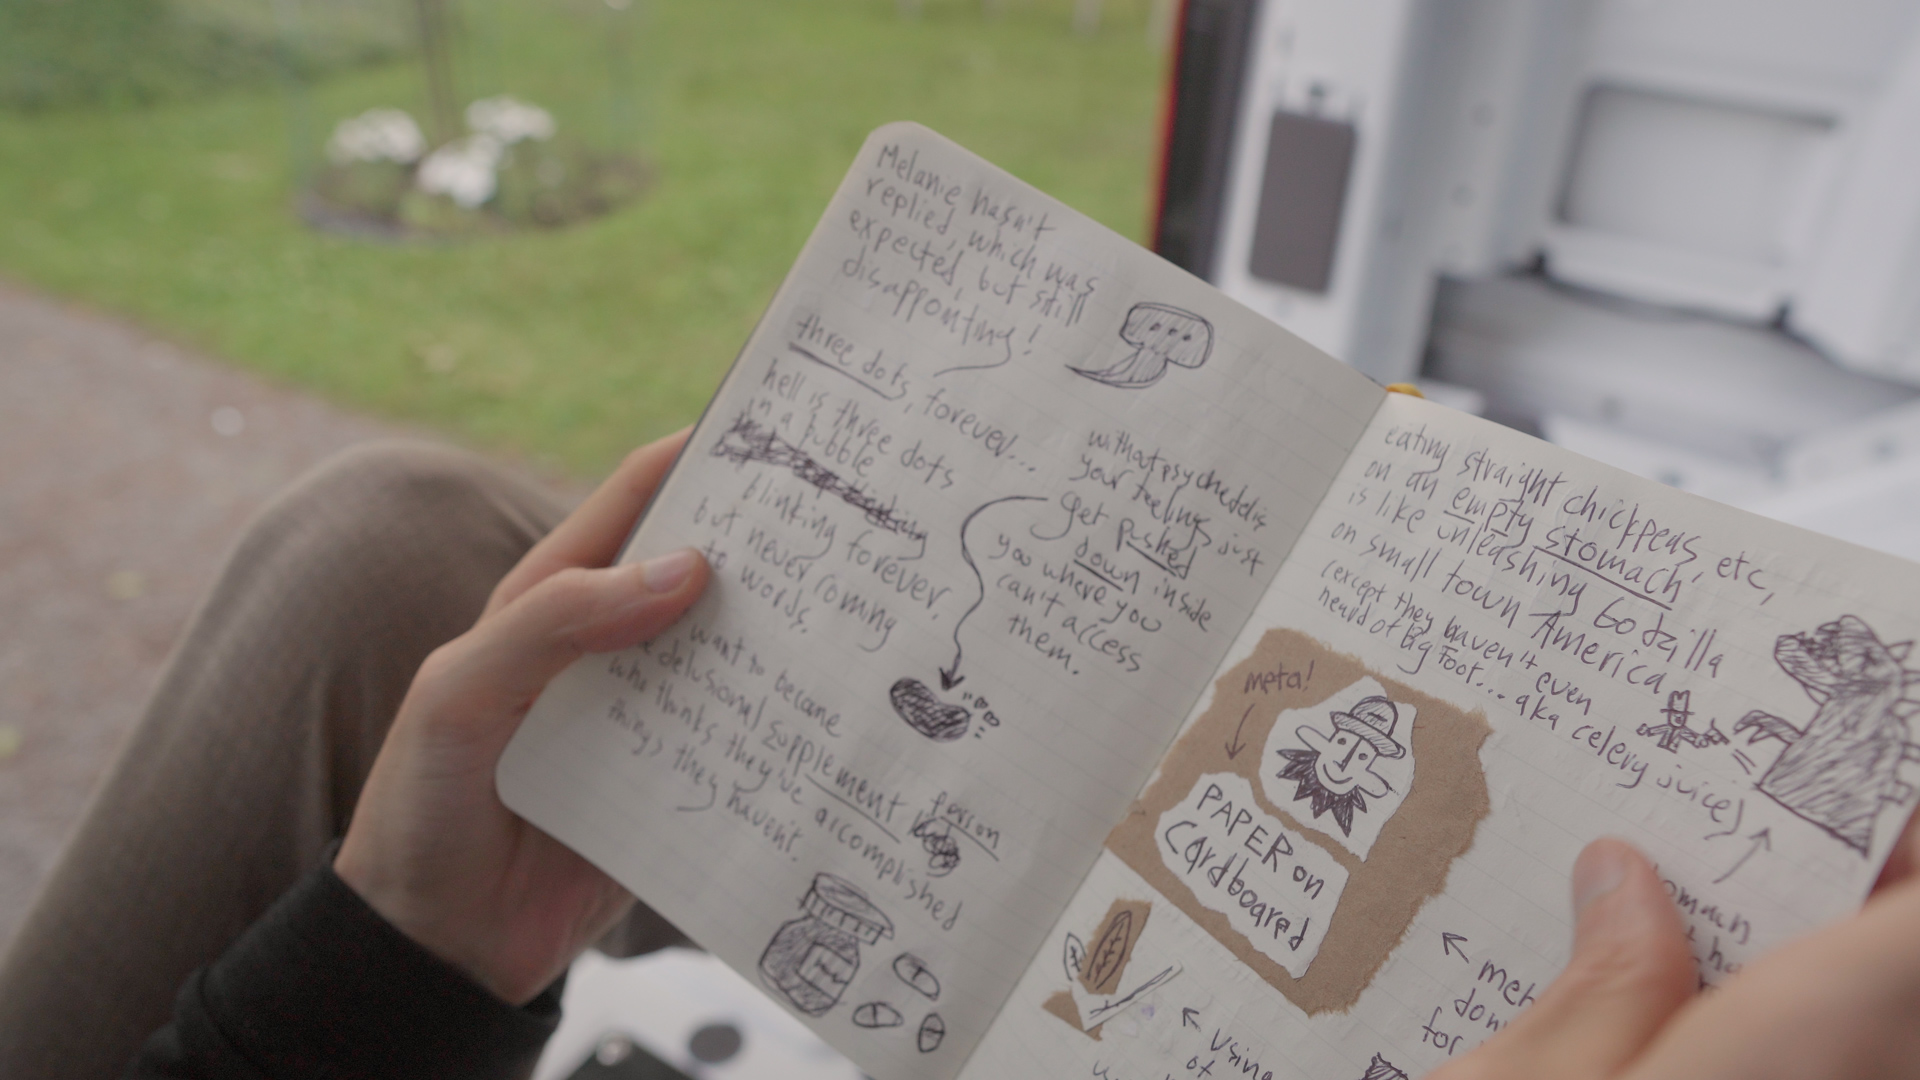 Melanie hasn't
replied, which was
expected, but still
disappointing!
three dots, forever...
hell is three dots
in a bubble
blinking forever,
but never coming
to words.
without psychedelics
your feelings just
get pushed
down inside
you where you
can't access
them.
want to become
delusional supplement person
who thinks they've accomplished
things they haven't.
eating straight chickpeas, etc,
on an empty stomach
is like unleashing Godzilla
on small town America
(except they haven't even
heard of Big Foot... aka celery juice)
meta!
PAPER on
Cardboard
for
using
of